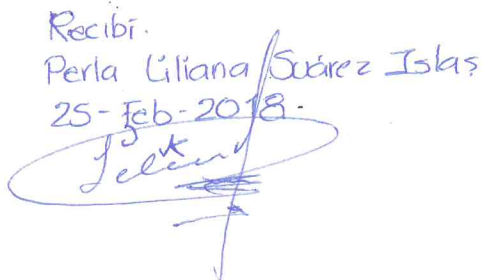 Recibí.
Perla Liliana Suárez Islas
25-Feb-2018.